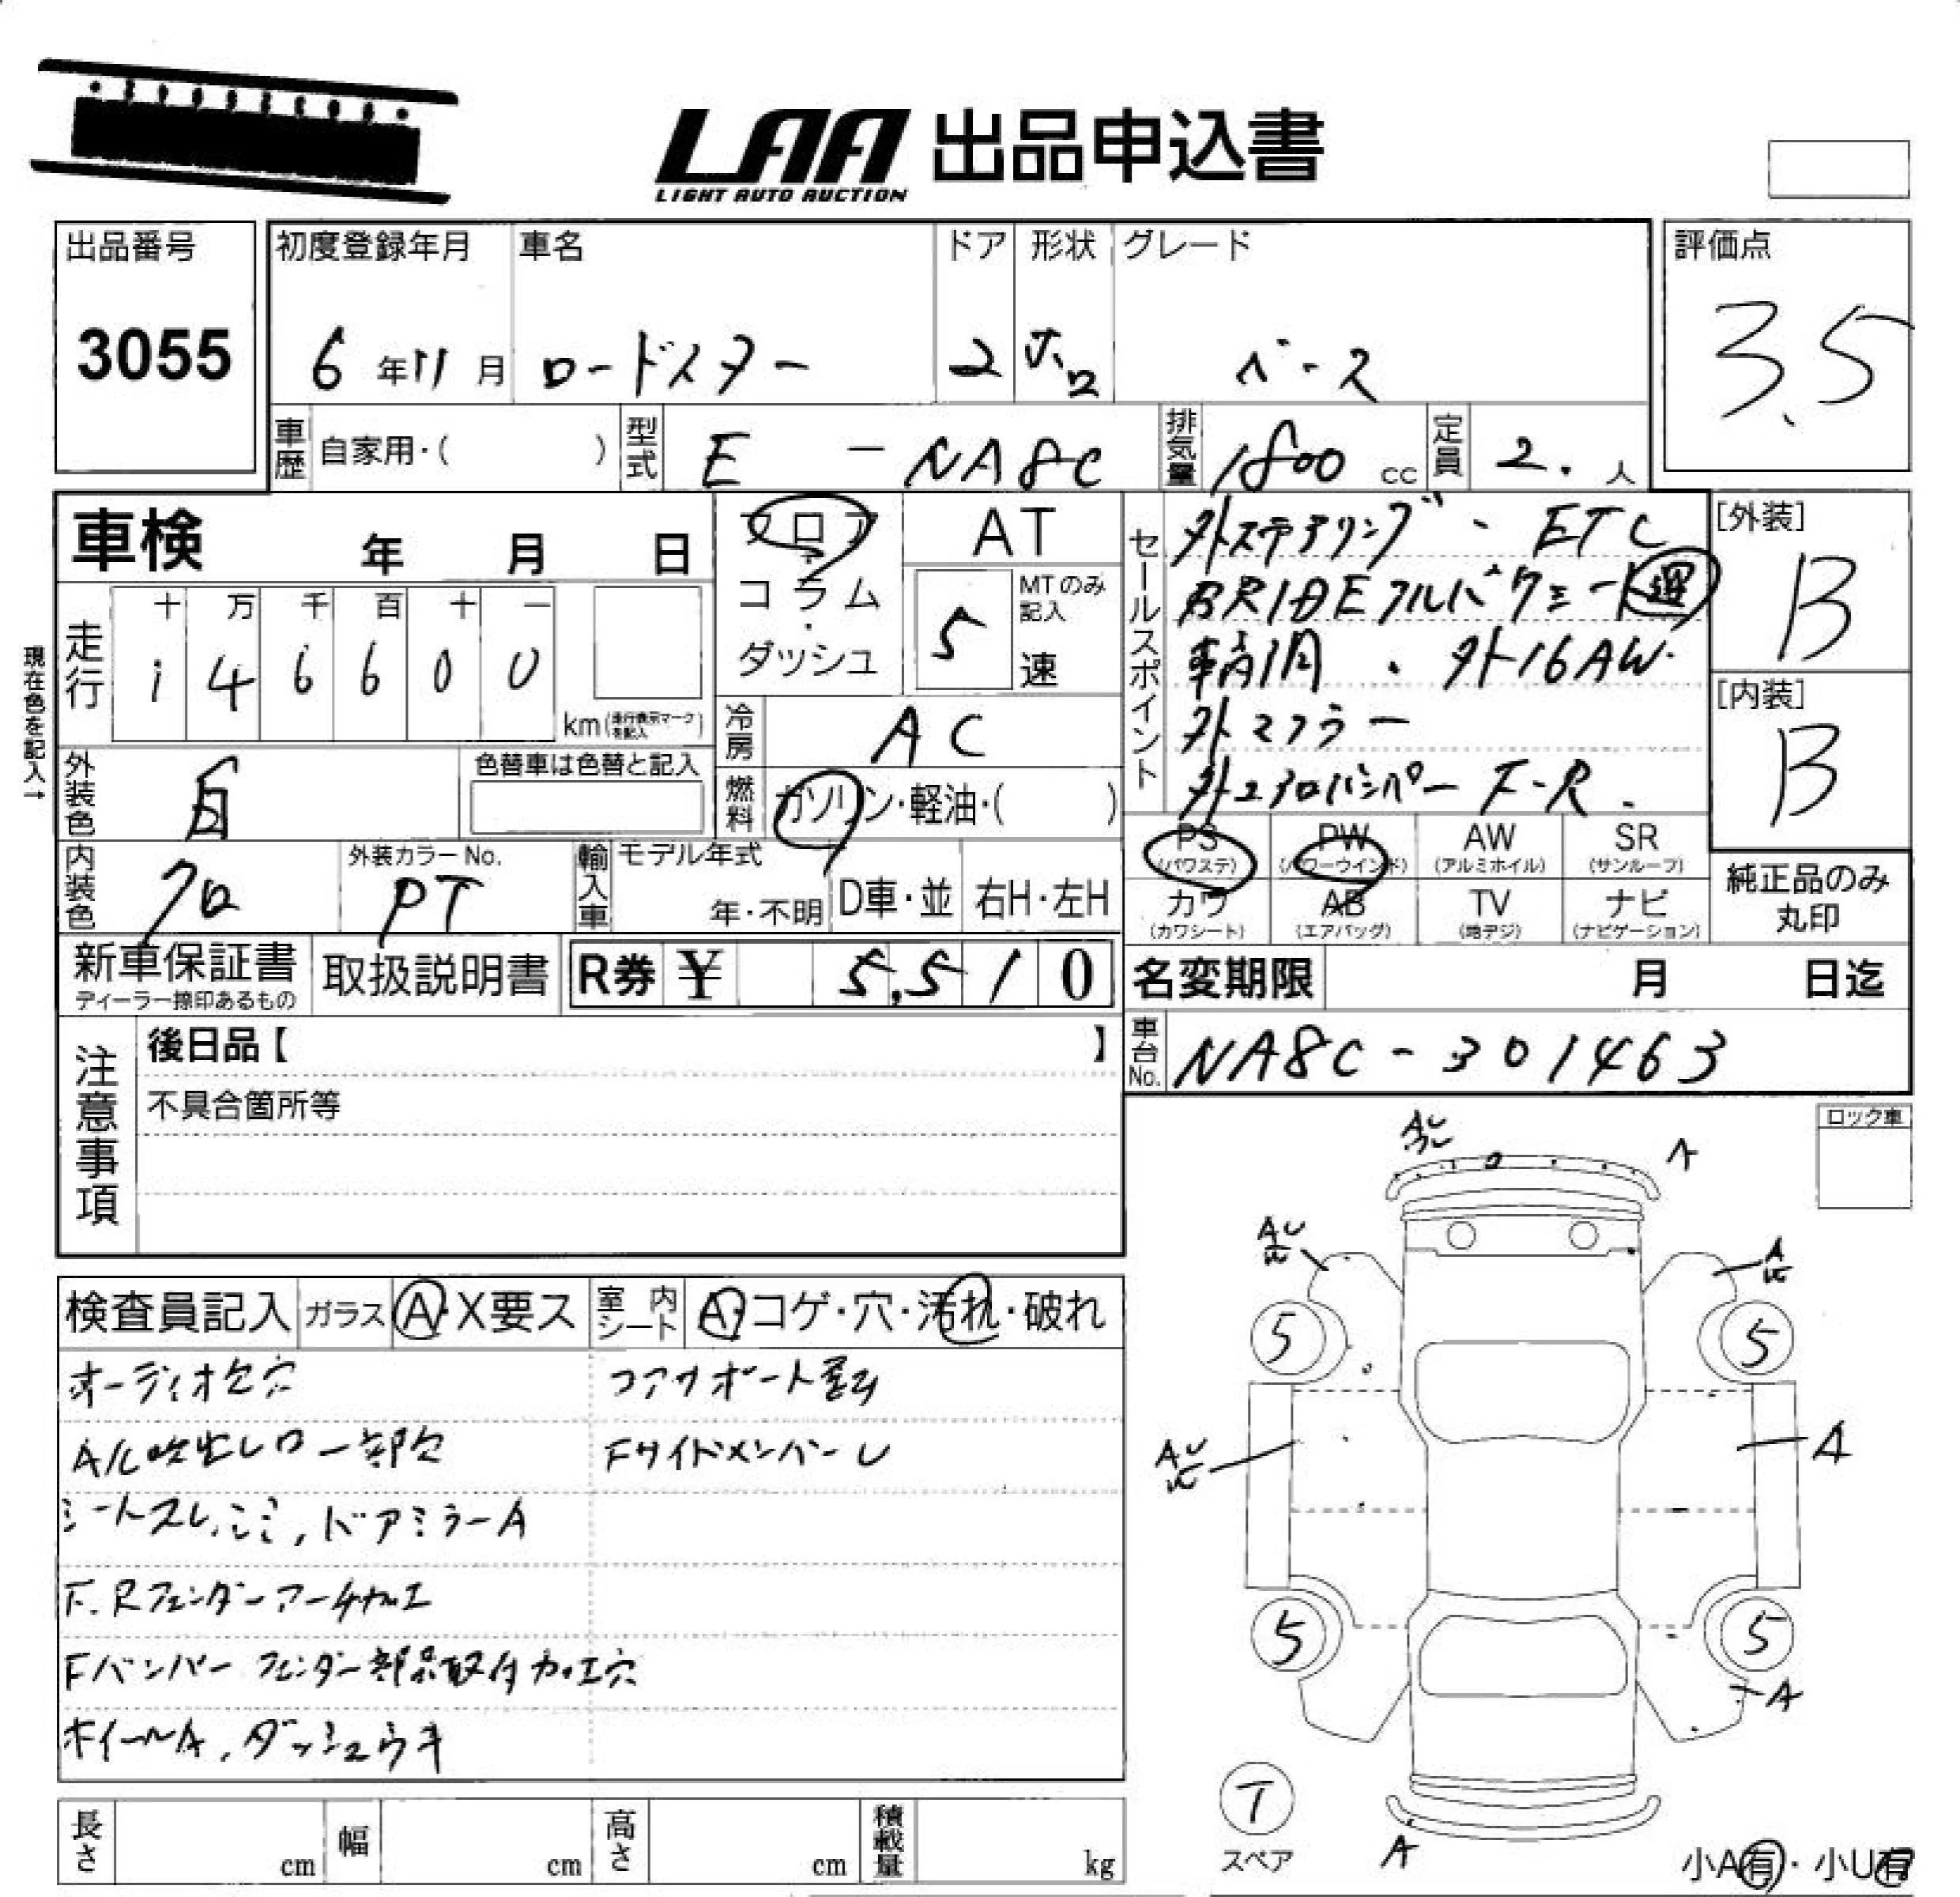 LAA 出品申込書
LIGHT AUTO AUCTION
出品番号
3055
初度登録年月
6年11月
車名
ロードスター
ドア
2
形状
ホロ
グレード
ベース
評価点
3.5
車歴 自家用・( )
型式 E - NA8C
排気量 1800 cc
定員 2. 人
車検 年 月 日
フロア・コラム・ダッシュ
AT
MTのみ記入
5速
走行
十 万 千 百 十 一
1 4 6 6 0 0
km(走行表示マークを記入)
現在色を記入→
冷房 AC
燃料 ガソリン・軽油・( )
外装色 白
色替車は色替と記入
内装色 クロ
外装カラーNo.
PT
輸入車
モデル年式
年・不明
D車・並
右H・左H
セールスポイント
外ステアリング・ETC
BRIDEフルバケシート 運
車高調・外16AW.
外マフラー
外エアロバンパー F-R.
[外装]
B
[内装]
B
PS
(パワステ)
PW
(パワーウインド)
AW
(アルミホイル)
SR
(サンルーフ)
カワ
(カワシート)
AB
(エアバッグ)
TV
(地デジ)
ナビ
(ナビゲーション)
純正品のみ
丸印
新車保証書
ディーラー捺印あるもの
取扱説明書
R券 ¥ 5,510
名変期限 月 日迄
車台No. NA8C-301463
注意事項
後日品【 】
不具合箇所等
ロック車
検査員記入
ガラス A・X要ス
室内シート A・コゲ・穴・汚れ・破れ
オーディオ欠穴
A/C吹出し口一部欠
シートスレ,シミ,ドアミラーA
F.Rフェンダーアーチ加工
Fバンパー フェンダー部品取付加工穴
ホイールA,ダッシュウキ
コアサポート歪み
FサイドメンバーU
AU
A
AU
A
5
5
AU
A
5
5
A
T
スペア
A
小A有・小U有
長さ cm
幅 cm
高さ cm
積載量 kg